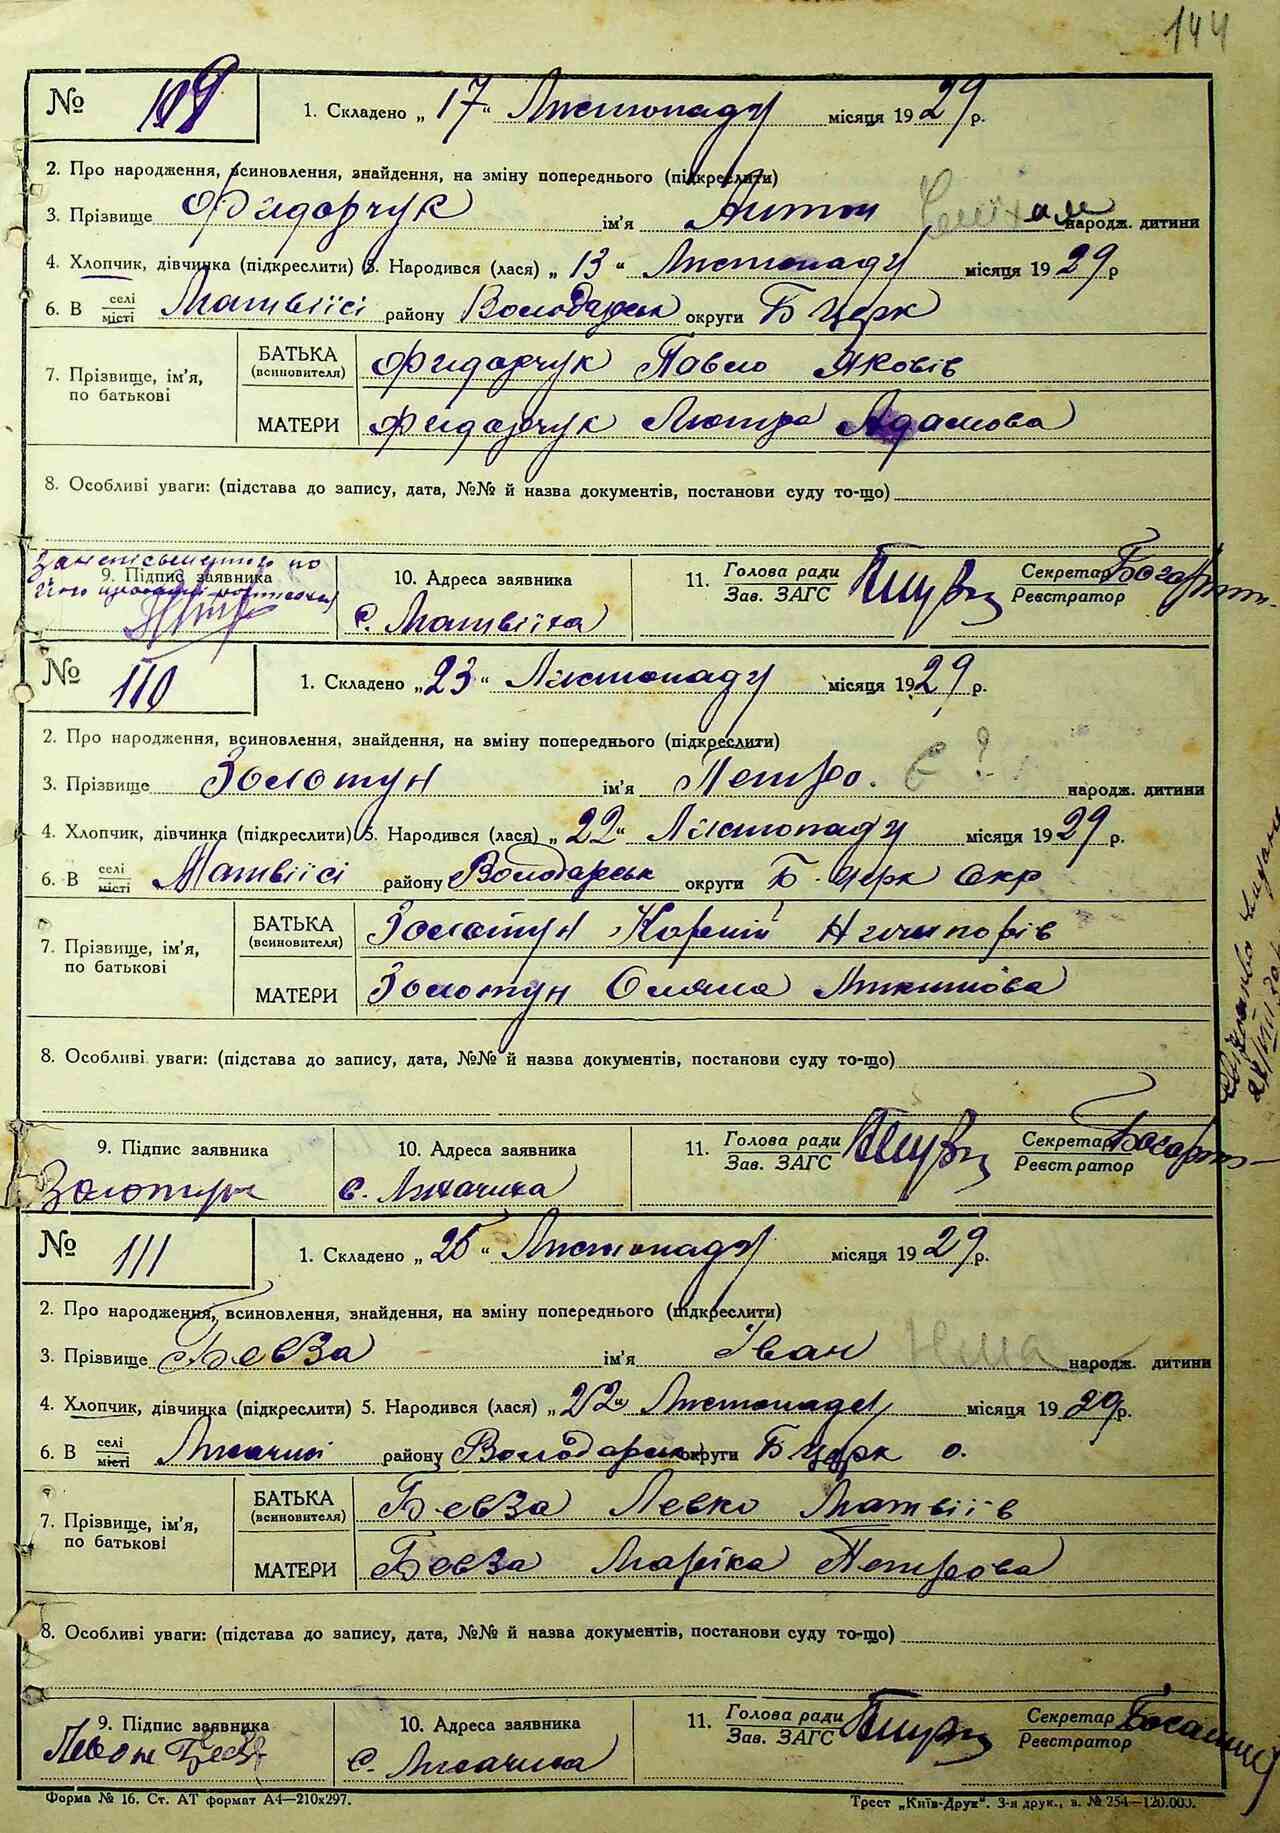 144
№ 109 1. Складено „17“ Листопаду місяця 1929 р.
2. Про народження, всиновлення, знайдення, на зміну попереднього (підкреслити)
3. Прізвище Фидорчук ім'я Антон народж. дитини
4. Хлопчик, дівчинка (підкреслити) 5. Народився (лася) „13“ Листопаду місяця 1929 р
6. В селі/місті Матвіїсі району Володарськ округи Б Церк
7. Прізвище, ім'я, по батькові
БАТЬКА (всиновителя) Фидорчук Павло Яковів
МАТЕРИ Фидорчук Адамова
8. Особливі уваги: (підстава до запису, дата, №№ й назва документів, постанови суду то-що)
9. Підпис заявника
10. Адреса заявника
с. Матвіїха
11. Голова ради / Зав. ЗАГС Секретар / Реєстратор
№ 110 1. Складено „23“ Листопаду місяця 1929 р.
2. Про народження, всиновлення, знайдення, на зміну попереднього (підкреслити)
3. Прізвище Золотун ім'я Петро. є ? народж. дитини
4. Хлопчик, дівчинка (підкреслити) 5. Народився (лася) „22“ Листопаду місяця 1929 р.
6. В селі/місті Матвіїсі району Володарськ округи Б. Церк окр
7. Прізвище, ім'я, по батькові
БАТЬКА (всиновителя) Золотун Корній Ничипорів
МАТЕРИ Золотун Оляна
8. Особливі уваги: (підстава до запису, дата, №№ й назва документів, постанови суду то-що)
9. Підпис заявника
Золотун
10. Адреса заявника
с.
11. Голова ради / Зав. ЗАГС Секретар / Реєстратор
№ 111 1. Складено „25“ Листопаду місяця 1929 р.
2. Про народження, всиновлення, знайдення, на зміну попереднього (підкреслити)
3. Прізвище Бевза ім'я Іван Нма народж. дитини
4. Хлопчик, дівчинка (підкреслити) 5. Народився (лася) „22“ Листопаду місяця 1929 р.
6. В селі/місті району Володарськ округи Б Церк о.
7. Прізвище, ім'я, по батькові
БАТЬКА (всиновителя) Бевза Левко Матвіїв
МАТЕРИ Бевза Марійка Петрова
8. Особливі уваги: (підстава до запису, дата, №№ й назва документів, постанови суду то-що)
9. Підпис заявника
10. Адреса заявника
с.
11. Голова ради / Зав. ЗАГС Секретар / Реєстратор
Форма № 16. Ст. АТ формат А4—210х297.
Трест „Київ-Друк“. 3-я друк., в. № 254—120.000.